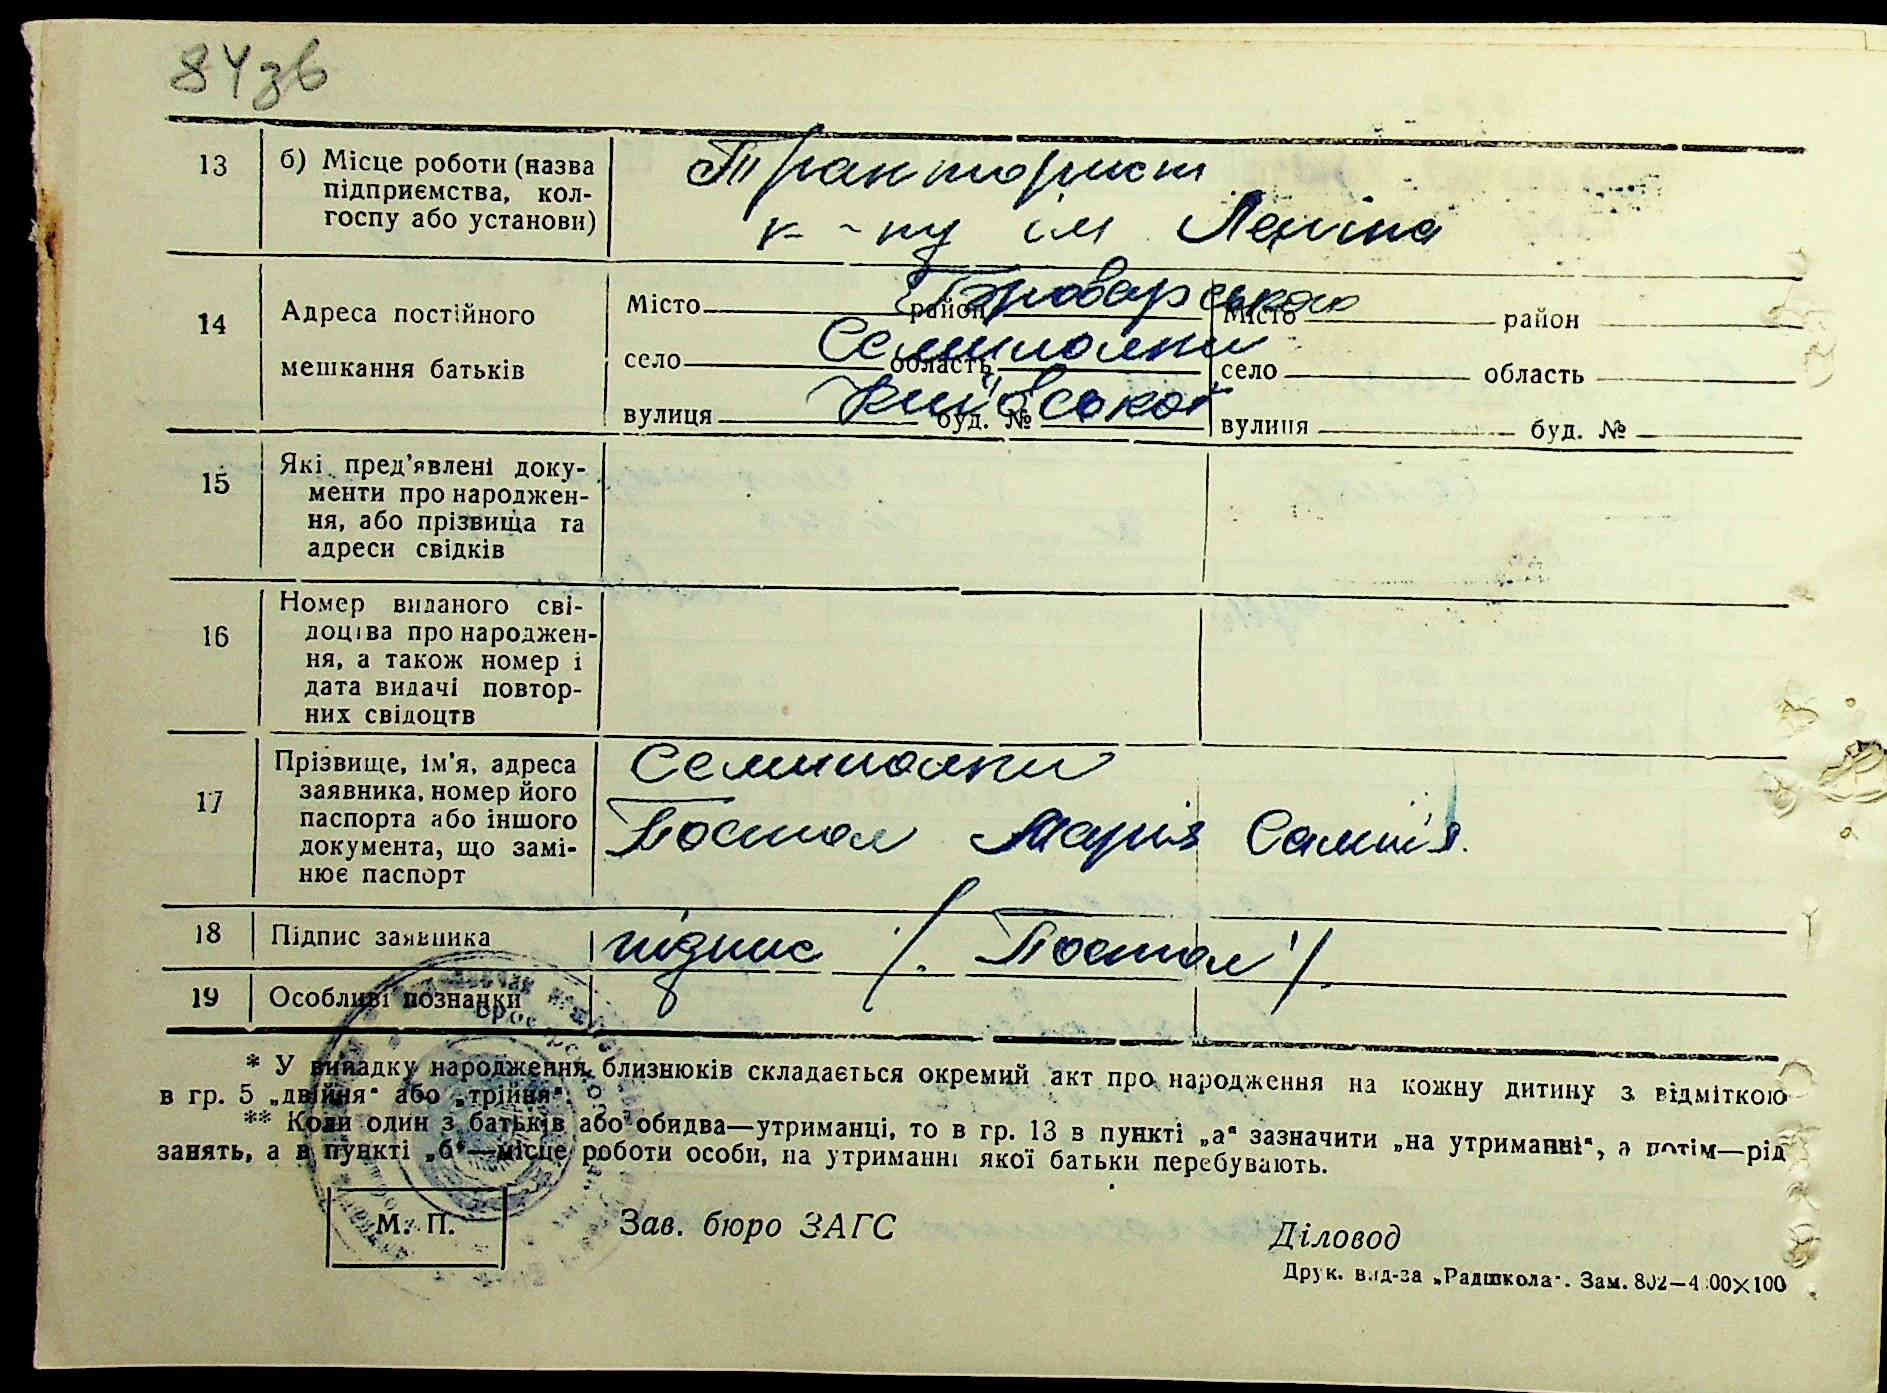 84зв
13 б) Місце роботи (назва підприємства, колгоспу або установи)
Тракторист
к-пу ім Леніна
14 Адреса постійного мешкання батьків
Місто район Броварського Місто район
село Семиполки область село область
вулиця Київської буд. № вулиця буд. №
15 Які пред’явлені доку-
менти про народжен-
ня, або прізвища та
адреси свідків
16 Номер виданого сві-
доцтва про народжен-
ня, а також номер і
дата видачі повтор-
них свідоцтв
17 Прізвище, ім’я, адреса
заявника, номер його
паспорта або іншого
документа, що замі-
нює паспорт
Семиполки
Постол Марія
18 Підпис заявника підпис /Постол/
19 Особливі познанки
* У випадку народження близнюків складається окремий акт про народження на кожну дитину з відміткою
в гр. 5 „двійня“ або „трійня“.
** Коли один з батьків або обидва—утриманці, то в гр. 13 в пункті „а“ зазначити „на утриманні“, а потім—рід
занять, а в пункті „б“—місце роботи особи, на утриманні якої батьки перебувають.
М. П. Зав. бюро ЗАГС Діловод
Друк. вид-ва „Радшкола“. Зам. 802—4 00×100